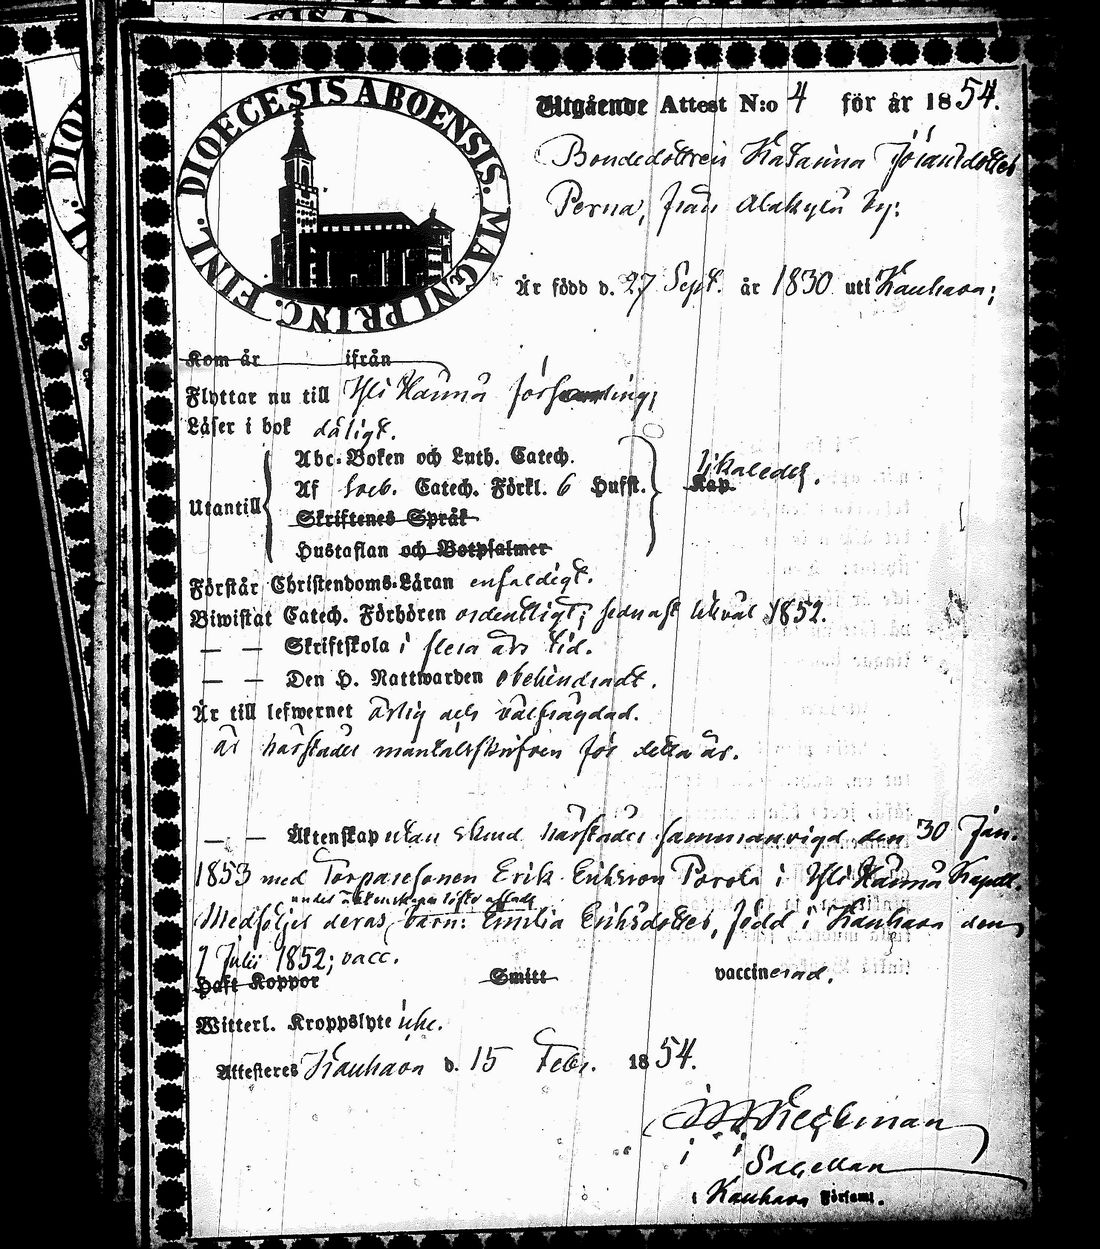 DIOECESIS ABOENSIS. MAGNI PRINC. FINL.
Utgående Attest N:o 4 för år 1854.
Bondedottren Katarina Johansdotter
Perna, från Alakylä by:
Är född d. 27 Sept. år 1830 uti Kauhava;
Kom år ifrån
Flyttar nu till Yli Härmä församling;
Läser i bok dåligt.
Abc-Boken och Luth. Catech.
Utantill Af Sveb. Catech. Förkl. 6 Hufst. Kap. likaledes.
Skriftenes Språk
Hustaflan och Botpsalmer
Förstår Christendoms-Läran enfaldigt.
Biwistat Catech. Förhören ordentligt; sednast likväl 1852.
— — Skriftskola i flera års tid.
— — Den H. Nattwarden obehindradt.
Är till lefwernet ärlig och välfrägdad.
är härstädes mantalsskrifven för detta år.
— — Äktenskap utan skuld härstädes sammanvigd den 30 Jan.
1853 med Torparesonen Erik Eriksson Porola i Yli Härmä Kapell.
under äktenskapslöfte aflade
Medföljer deras barn: Emilia Eriksdotter, född i Kauhava den
7 Julii 1852; vacc.
Haft Koppor Smitt vaccinerad.
Witterl. Kroppslyte icke.
Attesteres Kauhava d. 15 Febr. 1854.
Sacellan
i Kauhava Församl.